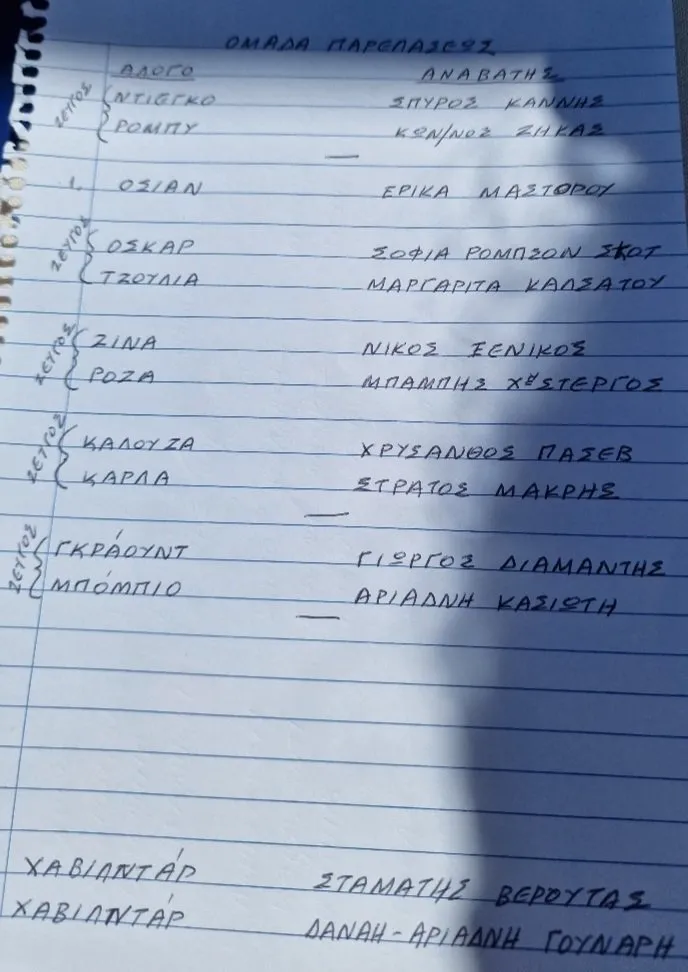 ΟΜΑΔΑ ΠΑΡΕΛΑΣΕΩΣ
ΑΛΟΓΟ ΑΝΑΒΑΤΗΣ
ΖΕΥΓΟΣ ΝΤΙΕΓΚΟ ΣΠΥΡΟΣ ΚΑΝΝΗΣ
ΡΟΜΠΥ ΚΩΝ/ΝΟΣ ΖΗΚΑΣ
1. ΟΣΙΑΝ ΕΡΙΚΑ ΜΑΣΤΟΡΟΥ
ΖΕΥΓΟΣ ΟΣΚΑΡ ΣΟΦΙΑ ΡΟΜΠΣΟΝ ΣΚΟΤ
ΤΖΟΥΛΙΑ ΜΑΡΓΑΡΙΤΑ ΚΑΛΣΑΤΟΥ
ΖΕΥΓΟΣ ΖΙΝΑ ΝΙΚΟΣ ΞΕΝΙΚΟΣ
ΡΟΖΑ ΜΠΑΜΠΗΣ ΧΑΣΤΕΡΓΟΣ
ΖΕΥΓΟΣ ΚΑΛΟΥΖΑ ΧΡΥΣΑΝΘΟΣ ΠΑΣΕΒ
ΚΑΡΛΑ ΣΤΡΑΤΟΣ ΜΑΚΡΗΣ
ΖΕΥΓΟΣ ΓΚΡΆΟΥΝΤ ΓΙΩΡΓΟΣ ΔΙΑΜΑΝΤΗΣ
ΜΠΌΜΠΙΟ ΑΡΙΑΔΝΗ ΚΑΣΙΩΤΗ
ΧΑΒΙΛΝΤΆΡ ΣΤΑΜΑΤΗΣ ΒΕΡΟΥΤΑΣ
ΧΑΒΙΛΝΤΆΡ ΔΑΝΑΗ-ΑΡΙΑΔΝΗ ΓΟΥΝΑΡΗ